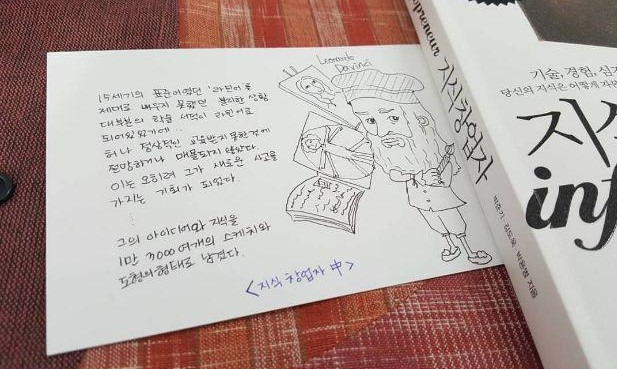 15세기의 표준어였던 '라틴어'를
제대로 배우지 못했던 불리한 상황
대부분의 학술 서적이 라틴어로
되어있었기에..
허나 정상적인 교육받지 못한 것에
절망하거나 매몰되지 않았다.
이는 오히려 그가 새로운 사고를
가지는 기회가 되었다.
그의 아이디어와 지식을
1만 3000여개의 스케치와
도형의 형태로 남겼다.
<지식 창업자 中>
Leonardo
Davinci
preneur 지식창업자
기술, 경험, 심지
당신의 지식은 어떻게 자본
지식
inf
박준기, 김도욱, 박용범 지음